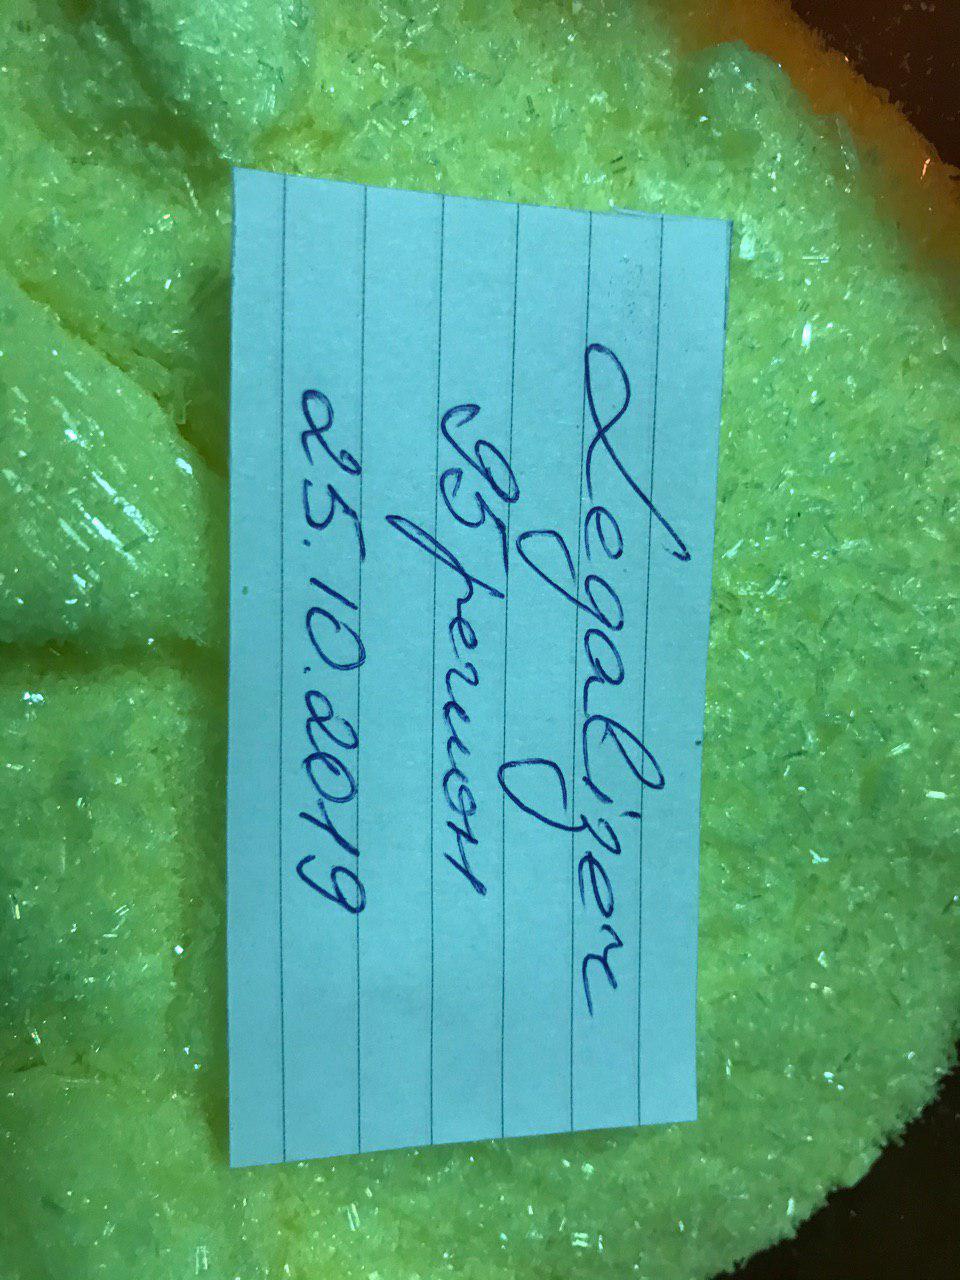 Legalizer
95 регион
25.10.2019